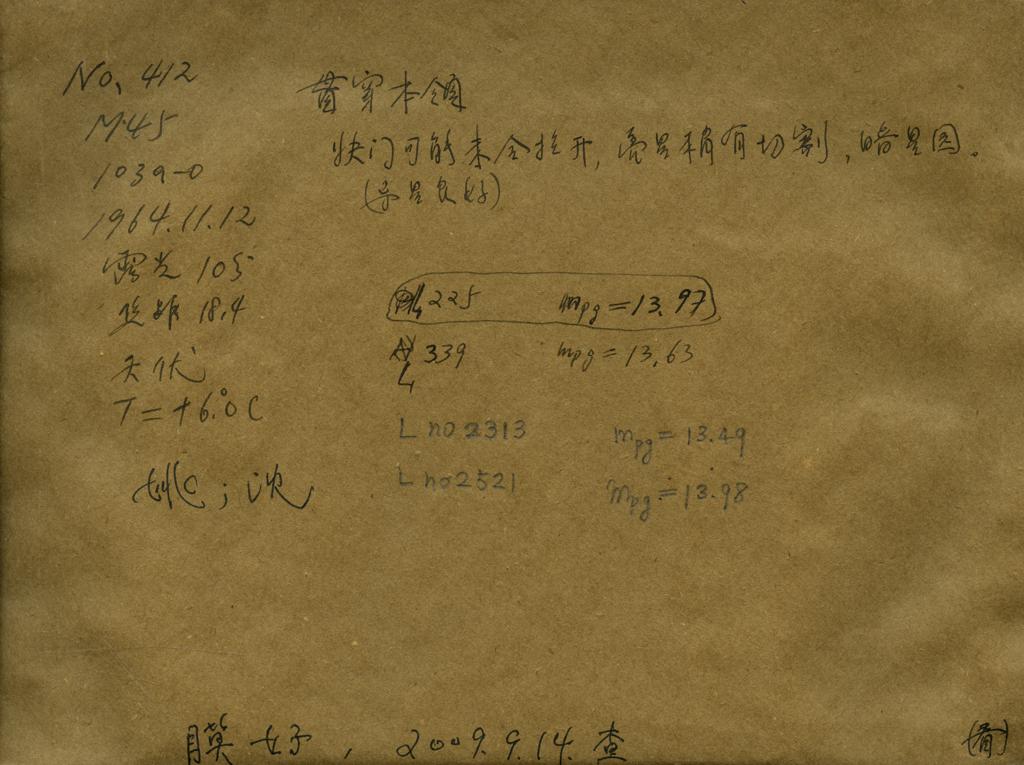 No. 412
M45
1039-0
1964.11.12
露光 105
焦距 18.4
天优
T=+6.°0C
姚；沈
黄安本领
快门可能未全拉开，亮星稍有切割，暗星圆。
(导星良好)
225 mpg=13.97
339 mpg=13.63
L no 2313 mpg=13.49
L no 2521 mpg=13.98
膜好，2009.9.14.查